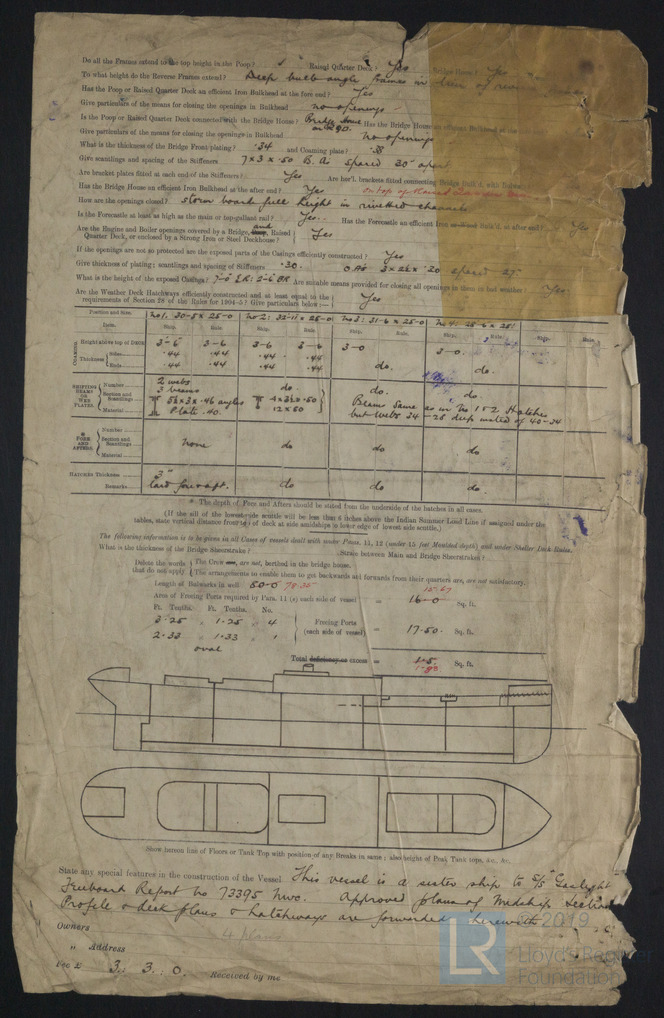 Do all the Frames extend to the top height in the Poop? Raised Quarter Deck? Yes Bridge House? Yes
To what height do the Reverse Frames extend? Deep bulb angle frames in lieu of reverse
Has the Poop or Raised Quarter Deck an efficient Iron Bulkhead at the fore end? Yes
Give particulars of the means for closing the openings in Bulkhead no openings
Is the Poop or Raised Quarter Deck connected with the Bridge House? Bridge House on RQD. Has the Bridge House an efficient Bulkhead at the
Give particulars of the means for closing the openings in Bulkhead no openings
What is the thickness of the Bridge Front plating? .34 and Coaming plate? .38
Give scantlings and spacing of the Stiffeners 7 x 3 x .50 B.A. spaced 30" apart
Are bracket plates fitted at each end of the Stiffeners? Yes Are hor'l. brackets fitted connecting Bridge Bulk'd. with
Has the Bridge House an efficient Iron Bulkhead at the after end? Yes on top of Raised Quarter
How are the openings closed? storm boards full height in rivetted channels
Is the Forecastle at least as high as the main or top-gallant rail? Yes. Has the Forecastle an efficient Iron Bulk'd. at after end? Yes
Are the Engine and Boiler openings covered by a Bridge, and Raised
Quarter Deck, or enclosed by a Strong Iron or Steel Deckhouse? Yes
If the openings are not so protected are the exposed parts of the Casings efficiently constructed? Yes
Give thickness of plating; scantlings and spacing of Stiffeners .30. O As 3 x 2½ x .20 spaced 27"
What is the height of the exposed Casings? 7-0 E.R. 2-6 BR Are suitable means provided for closing all openings in them in bad weather? Yes
Are the Weather Deck Hatchways efficiently constructed and at least equal to the
requirements of Section 28 of the Rules for 1904-5? Give particulars below:— Yes
Position and Size. No 1: 30-5 x 25-0 No 2: 32-11 x 25-0 No 3: 31-6 x 25-0 No 4: 25-6 x 25
Item. Ship. Rule. Ship. Rule. Ship. Rule. Ship. Rule. Ship. Rule.
COAMINGS Height above top of DECK 3-6 3-6 3-6 3-6 3-0 3-0
Thickness Sides .44 .44 .44 .44 do. do.
Ends .44 .44 .44 .44
SHIFTING BEAMS OR WEB PLATES. Number 2 webs 3 beams do do. do.
Section and Scantlings 5½ x 3 x .46 angles 4 x 3½ x .50 Beams same as in No 1 & 2 Hatches
Material Plate .40 12 x 50 but webs 34-28 deep instead of 40-34
* FORE AND AFTERS. Number
Section and Scantlings None do do do
Material
HATCHES Thickness 3"
Remarks laid fore & aft. do do do
* The depth of Fore and Afters should be stated from the underside of the hatches in all cases.
(If the sill of the lowest side scuttle will be less than 6 inches above the Indian Summer Load Line if assigned under the
tables, state vertical distance from top of deck at side amidships to lower edge of lowest side scuttle.)
The following information is to be given in all Cases of vessels dealt with under Paras. 11, 12 (under 15 feet Moulded depth) and under Shelter Deck Rules.
What is the thickness of the Bridge Sheerstrake? Strake between Main and Bridge Sheerstrakes?
Delete the words that do not apply
The Crew are, are not, berthed in the bridge house.
The arrangements to enable them to get backwards and forwards from their quarters are, are not satisfactory.
Length of Bulwarks in well 80-0 78.35
Area of Freeing Ports required by Para. 11 (e) each side of vessel = 15.67 16-0 Sq. ft.
Ft. Tenths. Ft. Tenths. No.
3.25 x 1.25 x 4 Freeing Ports
2.33 x 1.33 x 1 (each side of vessel) = 17.50. Sq. ft.
oval
Total deficiency or excess = 1.5 1.83 Sq. ft.
Show hereon line of Floors or Tank Top with position of any Breaks in same; also height of Peak, Tank tops, &c., &c.
State any special features in the construction of the Vessel This vessel is a sister ship to S/S "Gaslight"
Freeboard Report No 73395 Nwc. Approved plans of Midship Section
Profile & deck plans & hatchways are forwarded herewith.
Owners 4 plans
" Address
Fee £ 3: 3: 0. Received by me
LR
© 2019
Lloyd's Register
Foundation